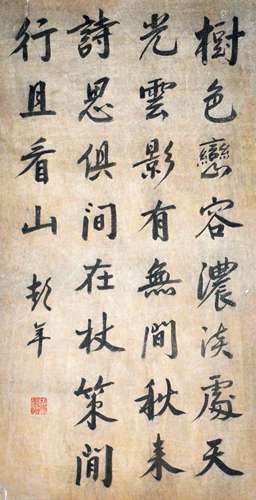 樹色巒容濃淡處天
光雲影有無間秋来
詩思俱間在杖策閒
行且看山
彭年